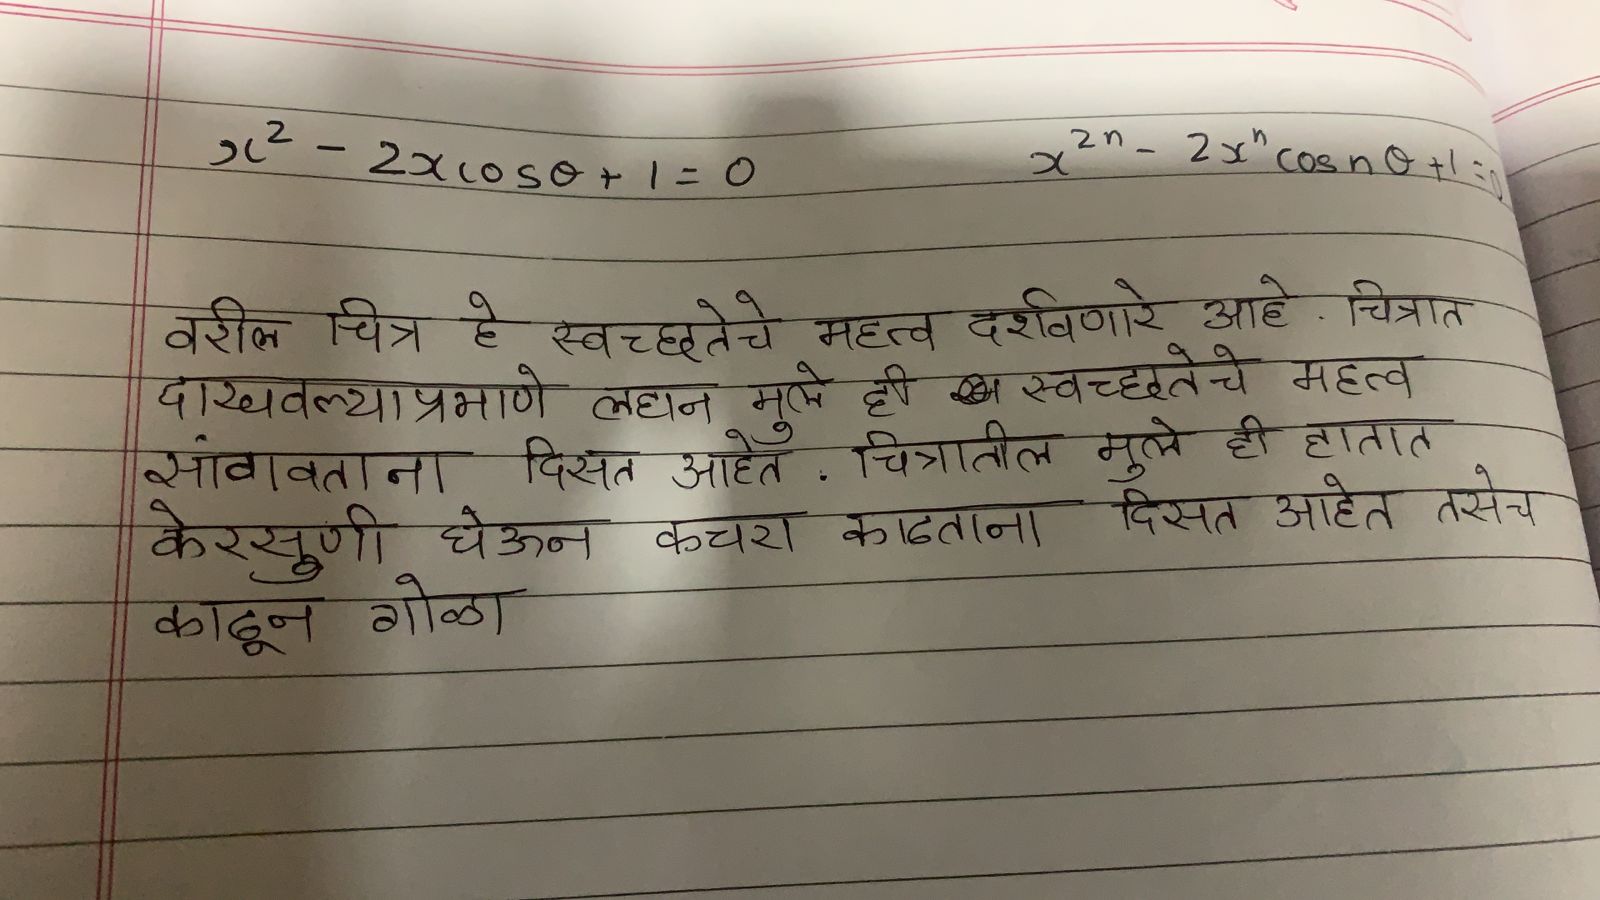 x² - 2x cosθ + 1 = 0    x²ⁿ - 2xⁿ cos nθ + 1 = 0
वरील चित्र हे स्वच्छतेचे महत्व दर्शविणारे आहे. चित्रात
दाखवल्याप्रमाणे लहान मुले ही स्वच्छतेचे महत्व
सांगावताना दिसत आहेत. चित्रातील मुले ही हातात
केरसुणी घेऊन कचरा काढताना दिसत आहेत तसेच
काढून गोळा